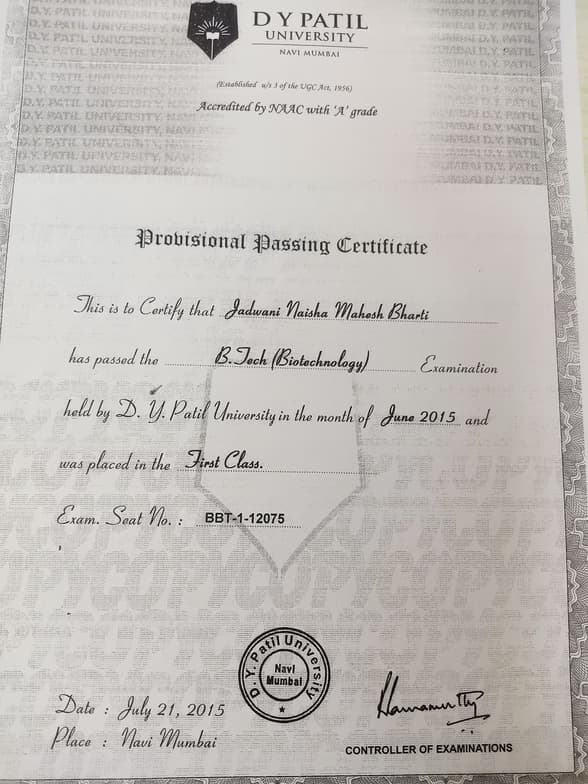 D Y PATIL
UNIVERSITY
NAVI MUMBAI
(Established u/s 3 of the UGC Act, 1956)
Accredited by NAAC with 'A' grade
Provisional Passing Certificate
This is to Certify that Jadwani Naisha Mahesh Bharti
has passed the B.Tech (Biotechnology) Examination
held by D. Y. Patil University in the month of June 2015 and
was placed in the First Class.
Exam. Seat No. : BBT-1-12075
COPY COPY COPY
D. Y. Patil University
Navi
Mumbai
Date : July 21, 2015
Place : Navi Mumbai
CONTROLLER OF EXAMINATIONS